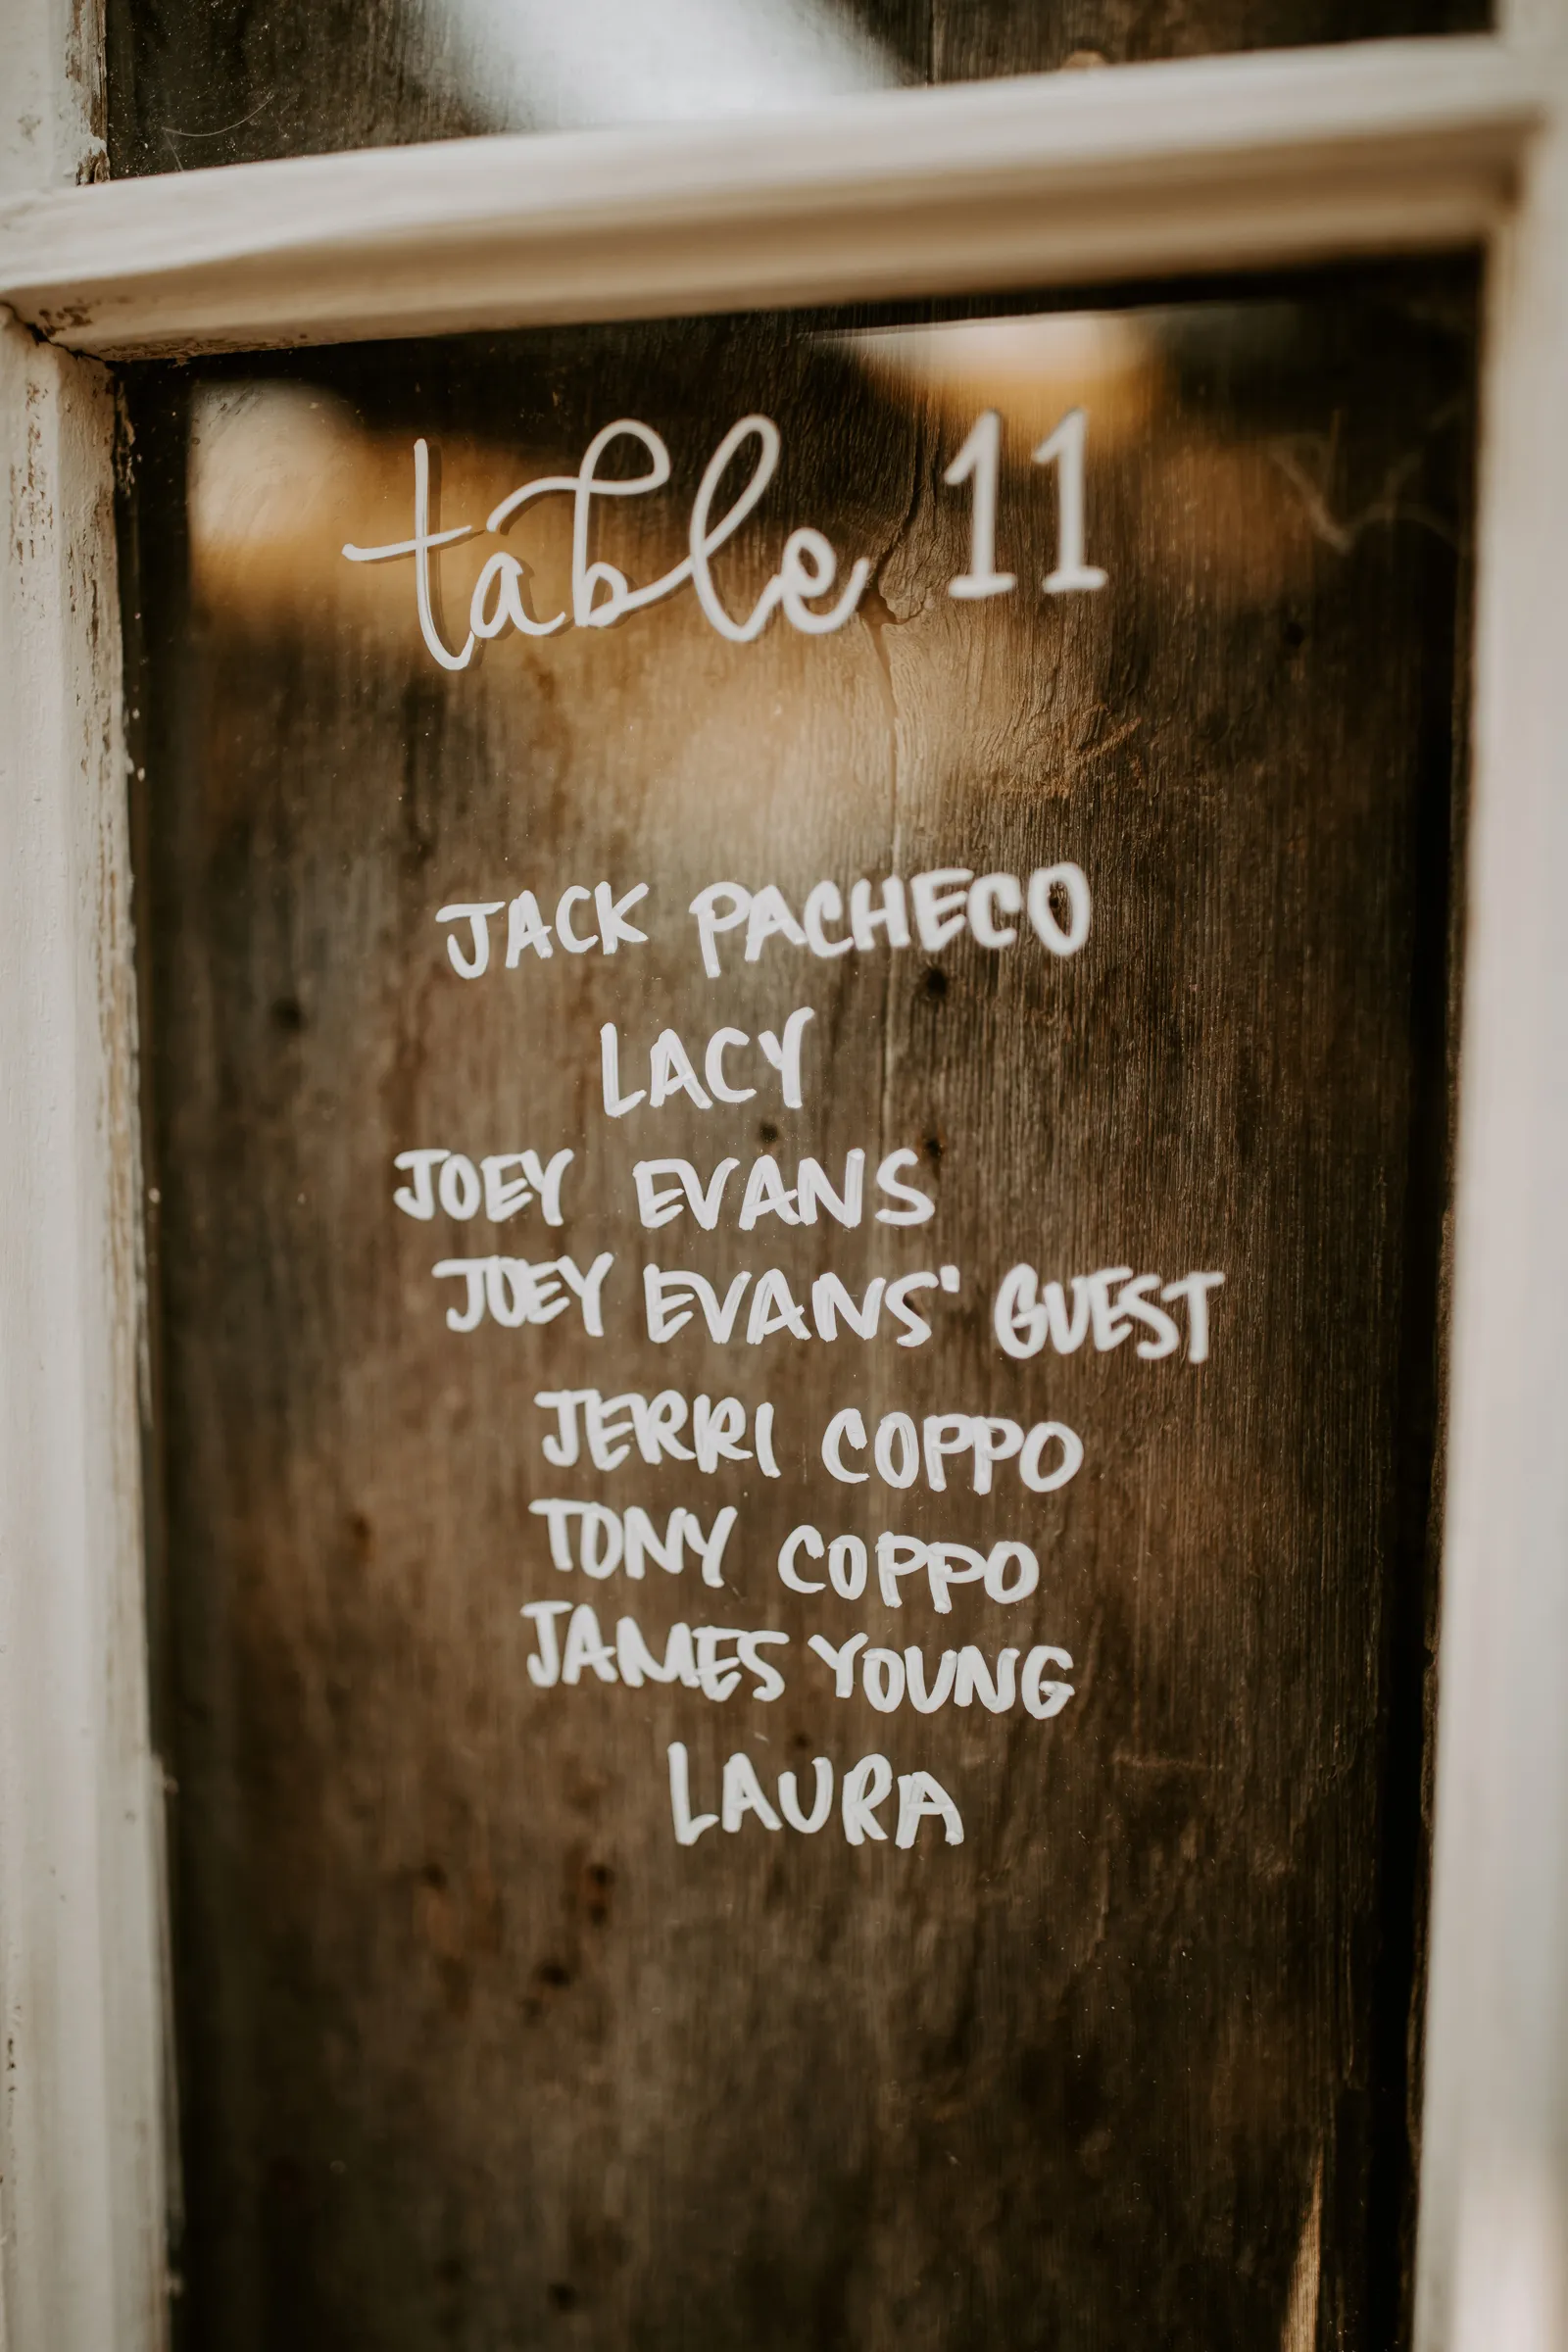 table 11
JACK PACHECO
LACY
JOEY EVANS
JOEY EVANS' GUEST
JERRI COPPO
TONY COPPO
JAMES YOUNG
LAURA